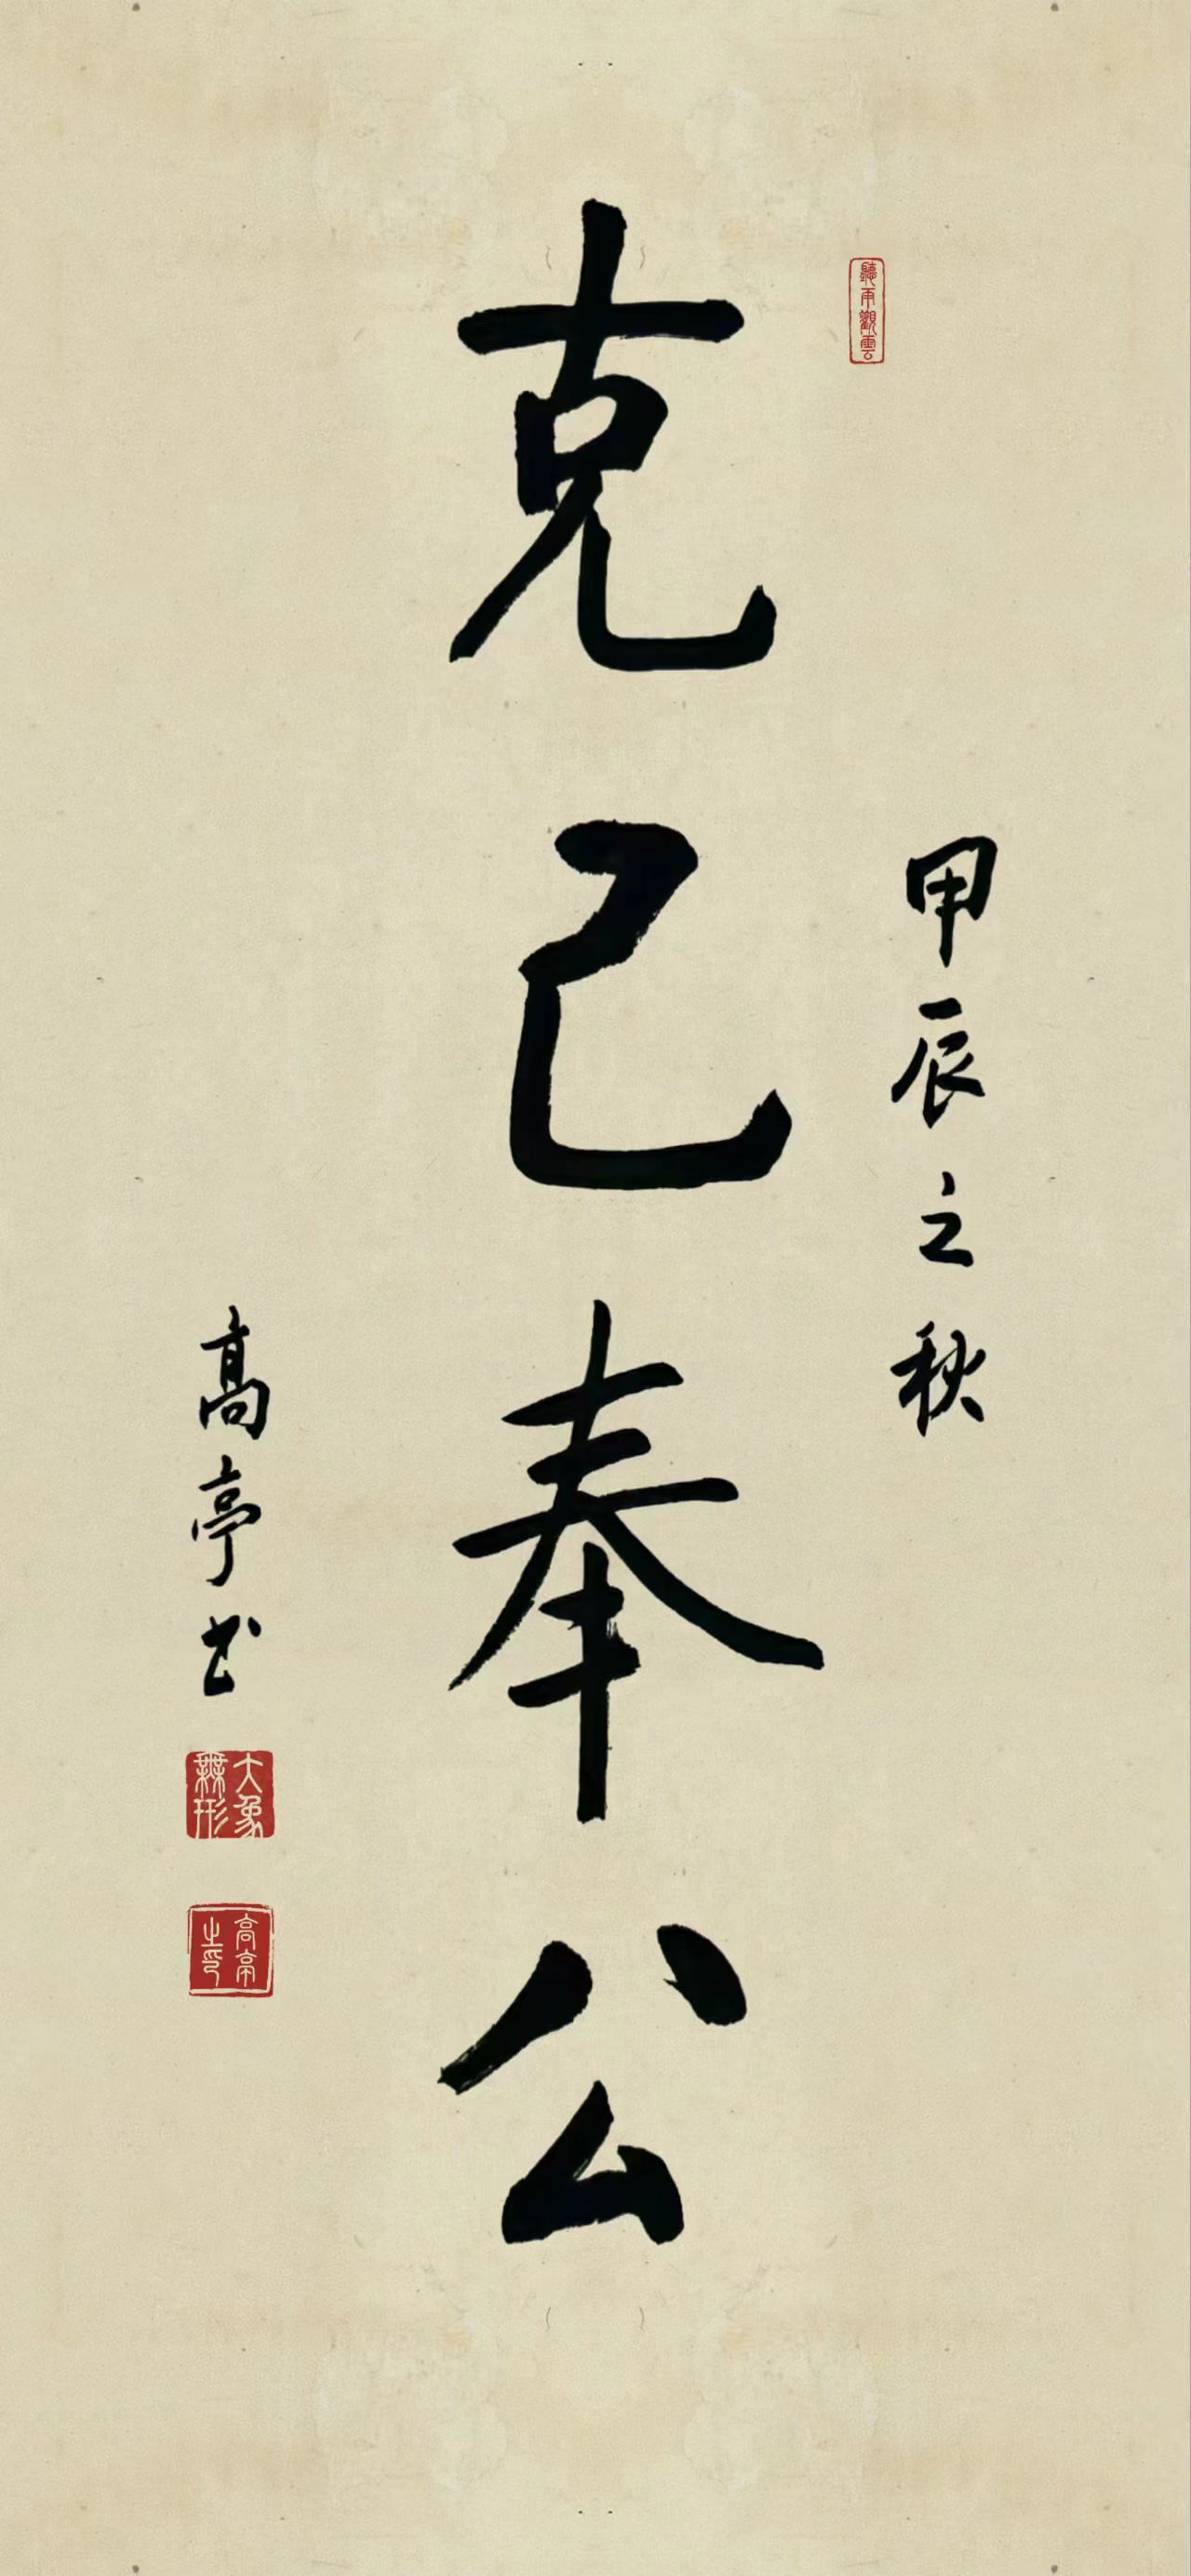 聽雨觀雲
甲辰之秋
克己奉公
高亭书
大象無形
高亭之印